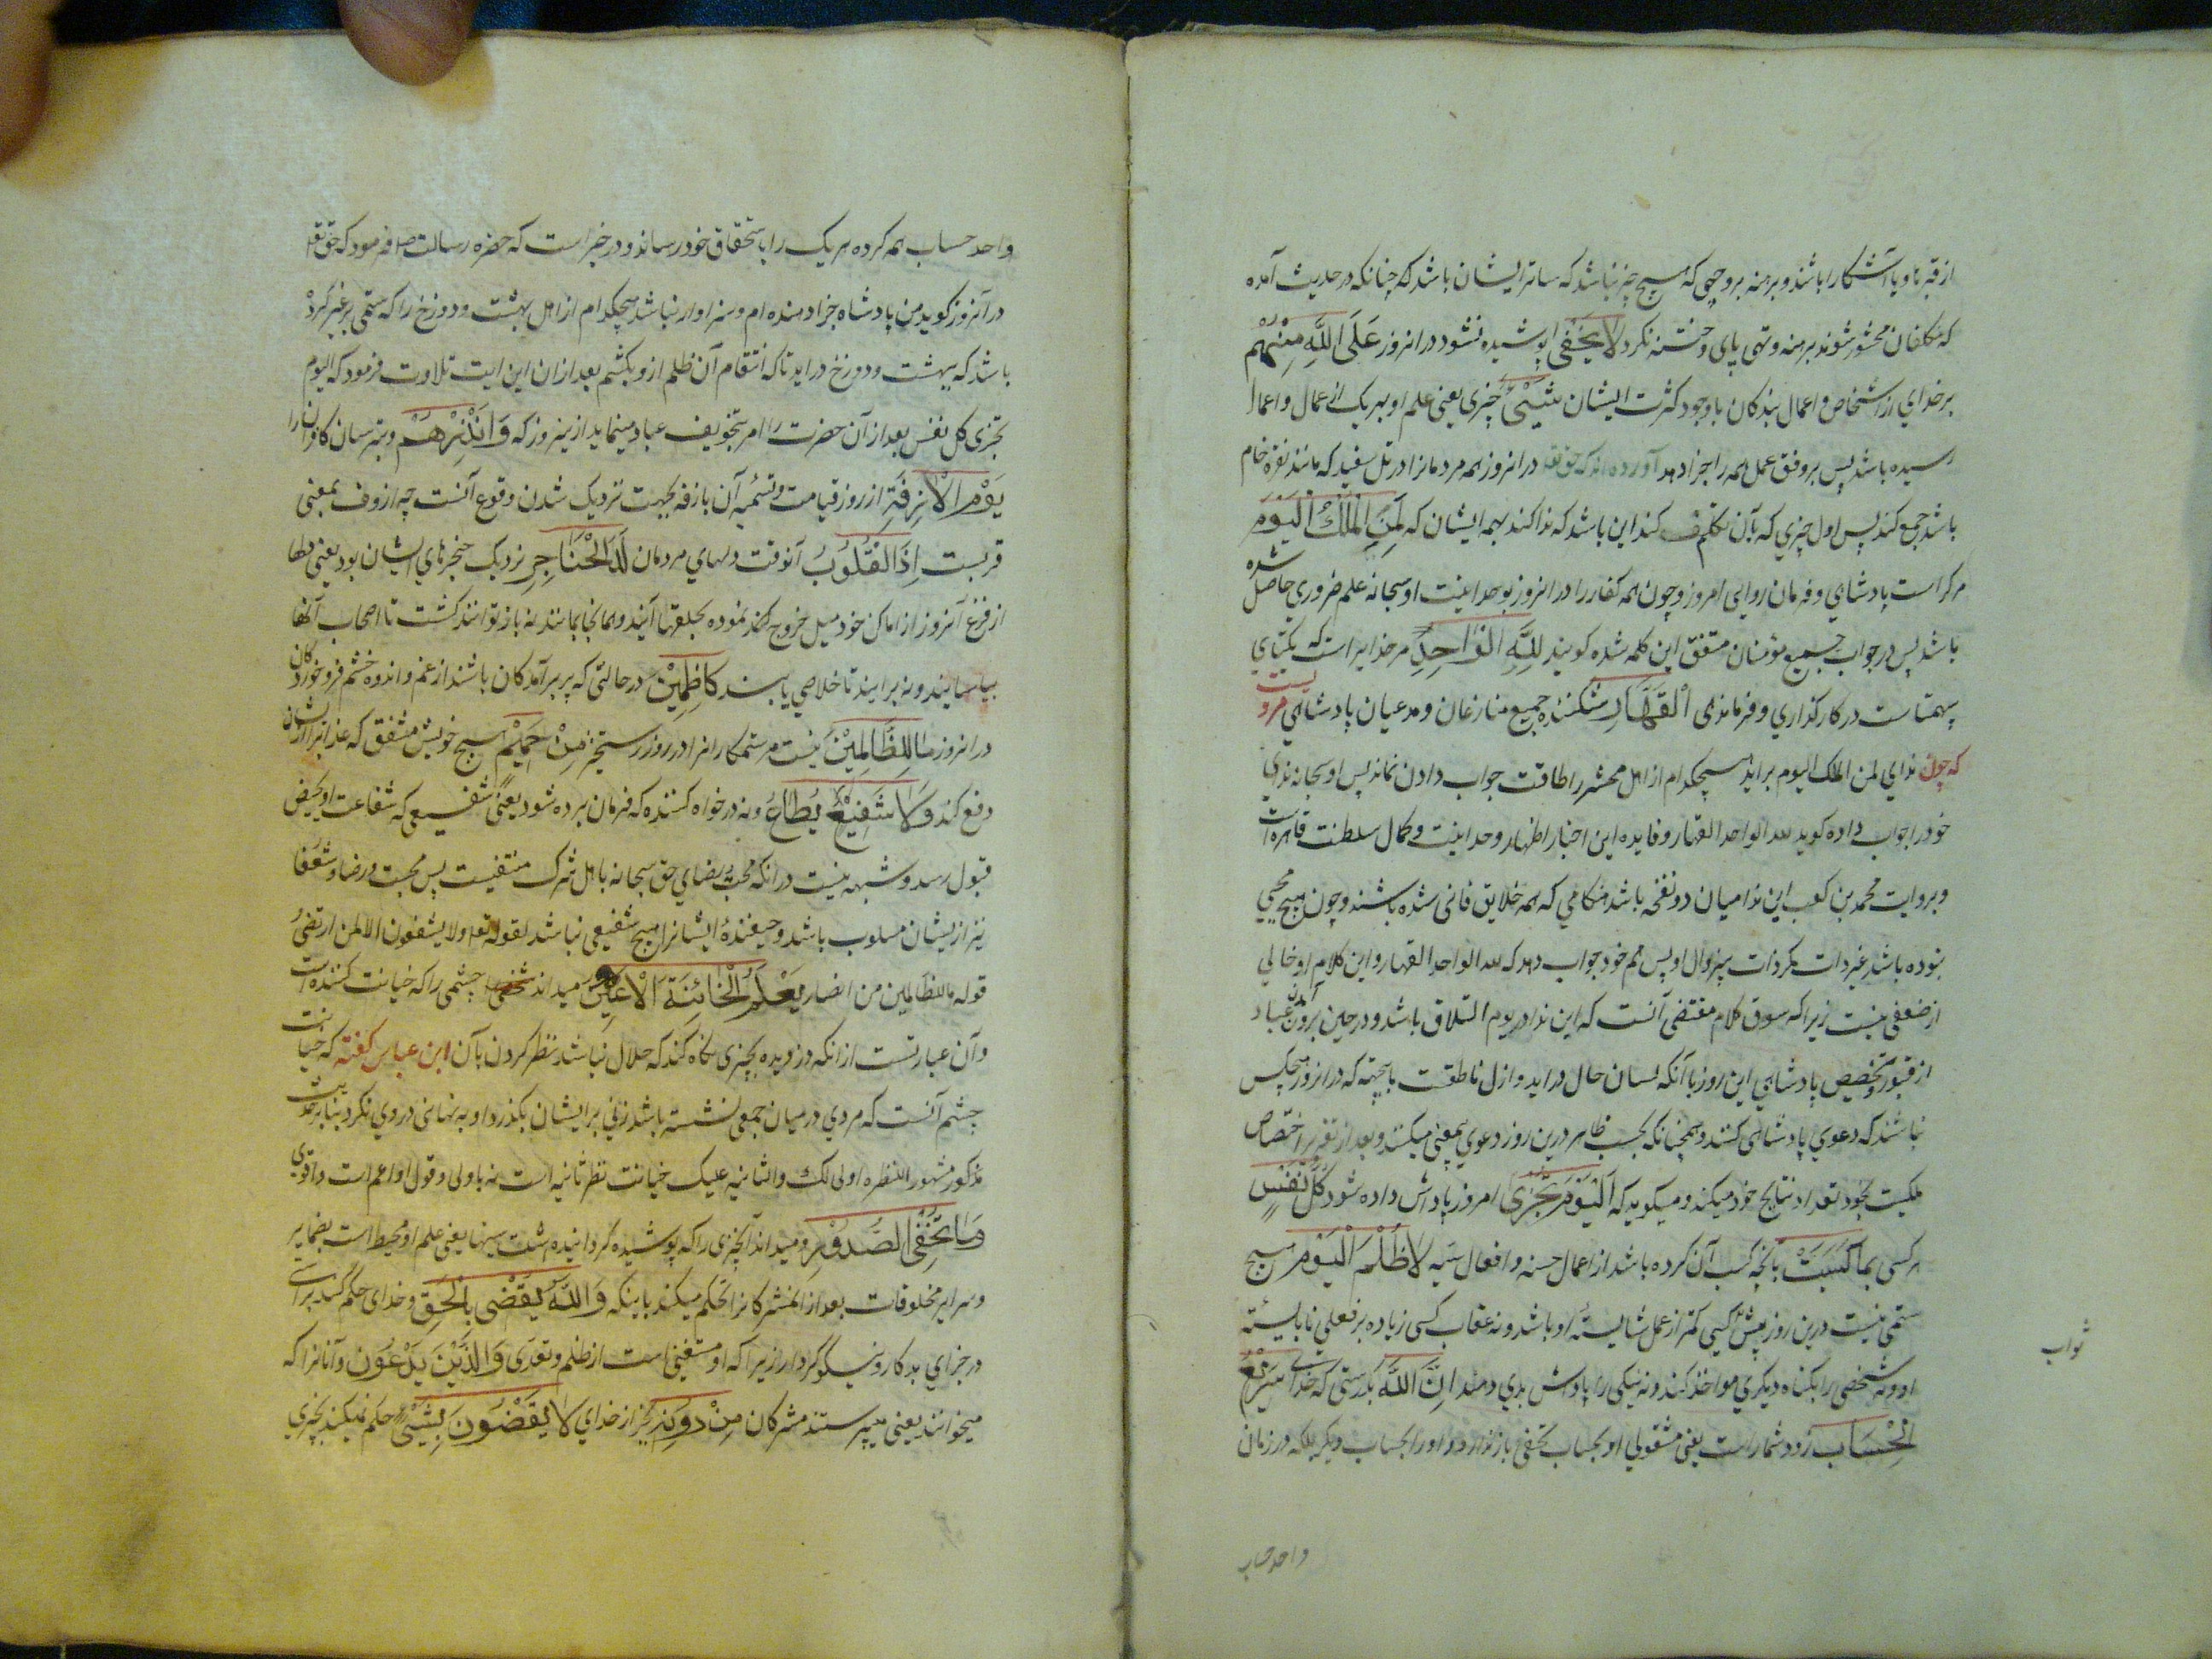 از قبرها و یا آشکارا باشند و برهنه بروجهی که هیچ چیز نباشد که ساتر ایشان باشد که چنانکه در حدیث آمده
که مکلفان محشور شوند برهنه و تهی پای و ختنه نکرده لَا یَخْفٰی پوشیده نشود در انروز عَلَی اللّٰهِ مِنْهُمْ
بر خدای از اشخاص و اعمال بندکان با وجود کثرت ایشان شَیْئٌ چیزی یعنی علم او بهر یک از عمال و اعمال
رسیده باشد پس بر وفق عمل همه را جزا دهد آورده اند که حق تعا در انروز همه مردمانرا در تل سفید که مانند نقره خام
باشد جمع کند پس اول چیزی که بآن تکلم کند این باشد که ندا کند بهمه ایشان که لِمَنِ الْمُلْكُ الْیَوْمَ
مر کراست پادشاهی و فرمان روایی امروز و چون همه کفار را در انروز بوحدانیت او سبحانه علم ضروری حاصل شده
باشد پس در جواب جمیع مؤمنان متفق این کلمه شده کویند لِلّٰهِ الْوَاحِدِ مر خدایراست که یکتای
بیهمتاست در کارگذاری و فرماندی الْقَهَّارِ شکننده جمیع منازعان و مدعیان پادشاهی مرویست
که چون ندای لمن الملک الیوم براید هیچکدام از اهل محشر را طاقت جواب دادن نماند پس او سبحانه ندای
خود را جواب داده کوید لله الواحد القهار و فایده این اخبار اظهار وحدانیت و کمال سلطنت قاهره است
و بروایت محمد بن کعب این ندا میان دو نفخه باشد هنکامی که همه خلایق فانی شده باشند و چون هیچ مجیبی
نبوده باشد غیر ذات مکر ذات بیزوال او پس هم خود جواب دهد که لله الواحد القهار و این کلام او خالی
از ضعفی نیست زیرا که سوق کلام مقتضی آنست که این ندا در یوم التلاق باشد و در حین برون آمدن عباد
از قبور و تخصیص پادشاهی این روز با آنکه لسان حال در اید و ازل ناطقست بانجهته که در انروز هیچکس
نباشد که دعوی پادشاهی کنند و همچنانکه بحسب ظاهر درین روز دعوی اینمعنی میکنند و بعد از تقریر اختصاص
ملکیت بخود تعداد نتایج خود میکند و میکوید که اَلْیَوْمَ تُجْزٰی امروز پاداش داده شود کُلُّ نَفْسٍ
هر کسی بِمَا کَسَبَتْ بانچه کسب آن کرده باشد از اعمال حسنه و افعال سیه لَا ظُلْمَ الْیَوْمَ هیچ
ستمی نیست درین روز پیش کسی کمتر از عمل شایسته او باشد و نه عقاب کسی زیاده بر فعلی نابایسته
او و نه شخصی را بکناه دیکری مواخذ کنند و نه نیکی را پاداش بدی دهند اِنَّ اللّٰهَ بدرستی که خدای سَرِیْعُ
الْحِسَابِ زود شمار است یعنی مشغولی او بحساب یکی باز ندارد او را بحساب دیکر بلکه در زمان
ثواب
واحد حساب
واحد حساب همه کرده هر یک را باستحقاق خود رساند و در خبر است که حضره رسالت ص فرمود که حق تعا
در آنروز کوید من پادشاه جزا دهنده ام و سزاوار نباشد هیچکدام از اهل بهشت و دوزخ را که ستمی بر غیر کرده
باشد که ببهشت و دوزخ دراید تا که انتقام آن ظلم از و بکشم بعد ازان این ایت تلاوت فرمود که الیوم
تجزی کل نفس بعد از آن حضرت را امر بتخویف عباد مینماید از ینروز که وَاَنْذِرْهُمْ و بترسان کافرانرا
یَوْمَ الْاٰزِفَةِ از روز قیامت و تسمیه آن بازفه بجهت نزدیک شدن وقوع آنست چه ازوف بمعنی
قربست اِذِ الْقُلُوْبُ آنوقت دلهای مردمان لَدَی الْحَنَاجِرِ نزدیک حنجرهای ایشان بود یعنی دلها
از فزع آنروز از اماکن خود میل خروج کنند نموده بحلقها آیند و همانجا بمانند نه باز توانند کشت تا اصحاب آنها
بیاسایند و نه برایند تا خلاصی یابند کَاظِمِیْنَ در حالتی که پر برآمدکان باشند از غم و اندوه خشم فرو خورندکان
در انروز مَا لِلظَّالِمِیْنَ نیست مر ستمکارانرا در روز رستخیز مِنْ حَمِیْمٍ هیچ خویش مشفق که عذابرا از ایشان
دفع کند وَلَا شَفِیْعٍ یُطَاعُ و نه درخواه کننده که فرمان برده شود یعنی شفیعی که شفاعت او بحیض
قبول رسد و شبهه نیست در انکه محبت و رضای حق سبحانه باهل شرک منتفیست پس محبت و رضا و شفعا
نیز ازیشان مسلوب باشد و حینئذ ایشانرا هیچ شفیعی نباشد لقوله تعا ولا یشفعون الا لمن ارتضی
قوله ما للظالمین من انصار یَعْلَمُ الْخَائِنَةَ الْاَعْیُنِ میداند چشمی را که خیانت کننده است
و آن عبارتست از انکه دزدیده بچیزی نکاه کند که حلال نباشد نظر کردن بآن ابن عباس کفته که خیانت
چشم آنست که مردی در میان جمعی نشسته باشد زنی بر ایشان بکذرد او به نهانی در وی نکرد بنا بر حدیث
مذکور مشهور النظره اولی لک والثانیه علیک خیانت نظر ثانیه است نه باولی و قول او اعم است واقوی
وَمَا تُخْفِی الصُّدُوْرِ و میداند آنچیزی را که پوشیده کردانیده است سینها یعنی علم او محیط است بضمایر
و سرایر مخلوقات بعد از ان مشرکانرا تحکم میکند باینکه وَاللّٰهُ یَقْضِی بِالْحَقِّ و خدای حکم کند براستی
در جزای بدکار و نیکو کردار زیرا که او مستغنی است از ظلم و تعدی وَالَّذِیْنَ یَدْعُوْنَ و آنانرا که
میخوانند یعنی میپرستند مشرکان مِنْ دُوْنِهِ بجز از خدای لَا یَقْضُوْنَ بِشَیْئٍ حکم نمیکنند بچیزی